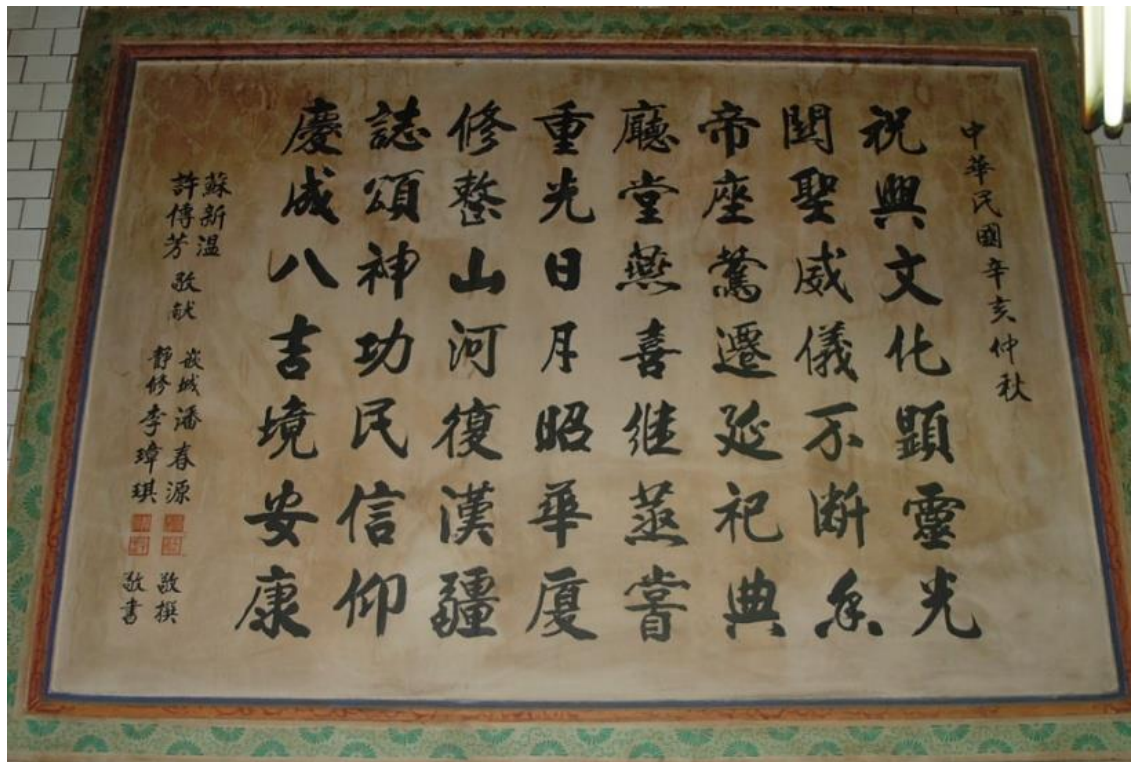 中華民國辛亥仲秋
祝興文化顕靈光
関聖威儀不断香
帝座鶯遷延祀典
廳堂燕喜継蒸嘗
重光日月昭華廈
修整山河復漢疆
誌頌神功民信仰
慶成八吉境安康
蘇新温
許傳芳
敬献
崁城潘春源敬撰
靜修李璋琪敬書